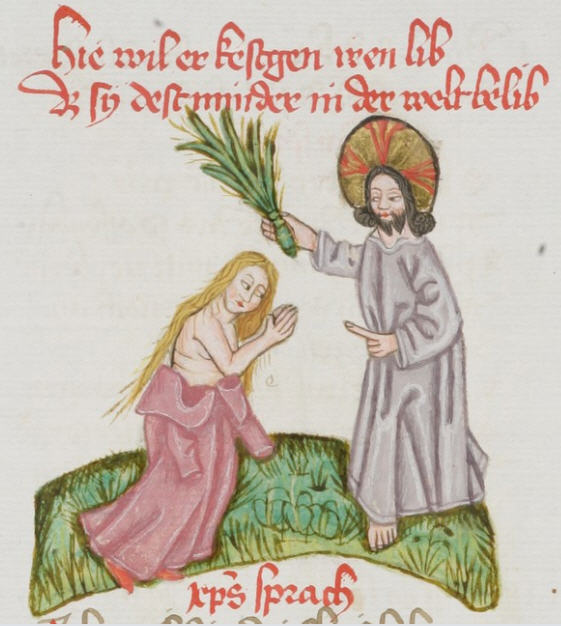 Hie wil er kestgen iren lib
Dz sy dest minder in der welt belib
xp̄s sprach